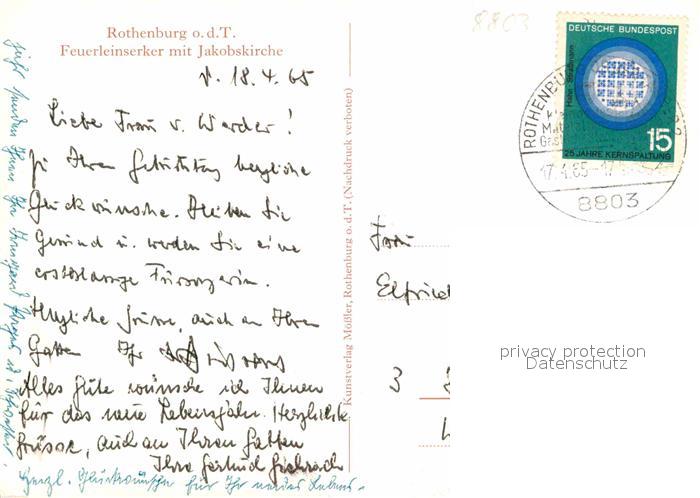 Rothenburg o.d.T.
Feuerleinserker mit Jakobskirche
18.4.65
Liebe Frau v. Werder!
Zu Ihrem Geburtstag herzliche
Glückwünsche. Bleiben Sie
Gesund u. werden Sie eine
erstklassige Fürsorgerin.
Herzliche Grüsse, auch an Ihren
Gatten Ihr
Alles Gute wünsche ich Ihnen
für das neue Lebensjahr. Herzliche
Grüsse, auch an Ihren Gatten
Ihre Gertrud
Herzl. Glückwünsche für Ihr neues Lebens-
Kunstverlag Mößler, Rothenburg o.d.T. (Nachdruck verboten)
8803
DEUTSCHE BUNDESPOST
Hahn Straßmann
15
25 JAHRE KERNSPALTUNG
ROTHENBU
17.4.65-17
8803
Frau
Elfried
3
privacy protection
Datenschutz